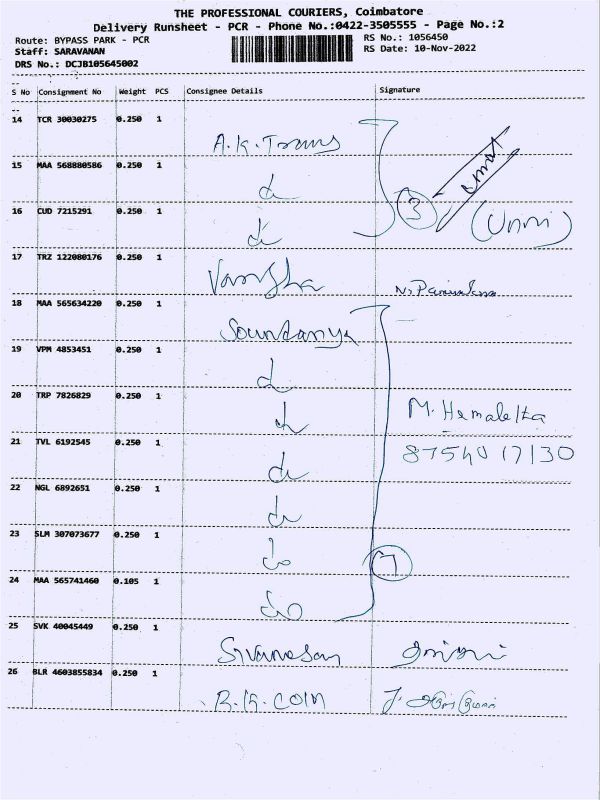 THE PROFESSIONAL COURIERS, Coimbatore
Delivery Runsheet - PCR - Phone No.:0422-3505555 - Page No.:2
Route: BYPASS PARK - PCR RS No.: 1056450
Staff: SARAVANAN RS Date: 10-Nov-2022
DRS No.: DCJB105645002
S No Consignment No Weight PCS Consignee Details Signature
14 TCR 30030275 0.250 1 A.K. Trans
15 MAA 568880586 0.250 1 do
3
16 CUD 7215291 0.250 1 do (Unni)
17 TRZ 122080176 0.250 1 Varsha
18 MAA 565634220 0.250 1 Soundarya
19 VPM 4853451 0.250 1 do
20 TRP 7826829 0.250 1 do M. Hemaletha
21 TVL 6192545 0.250 1 do 8754017130
22 NGL 6892651 0.250 1 do
23 SLM 307073677 0.250 1 do 7
24 MAA 565741460 0.105 1 do
25 SVK 40045449 0.250 1 Sivanesan
26 BLR 4603855834 0.250 1 R.K. COIN